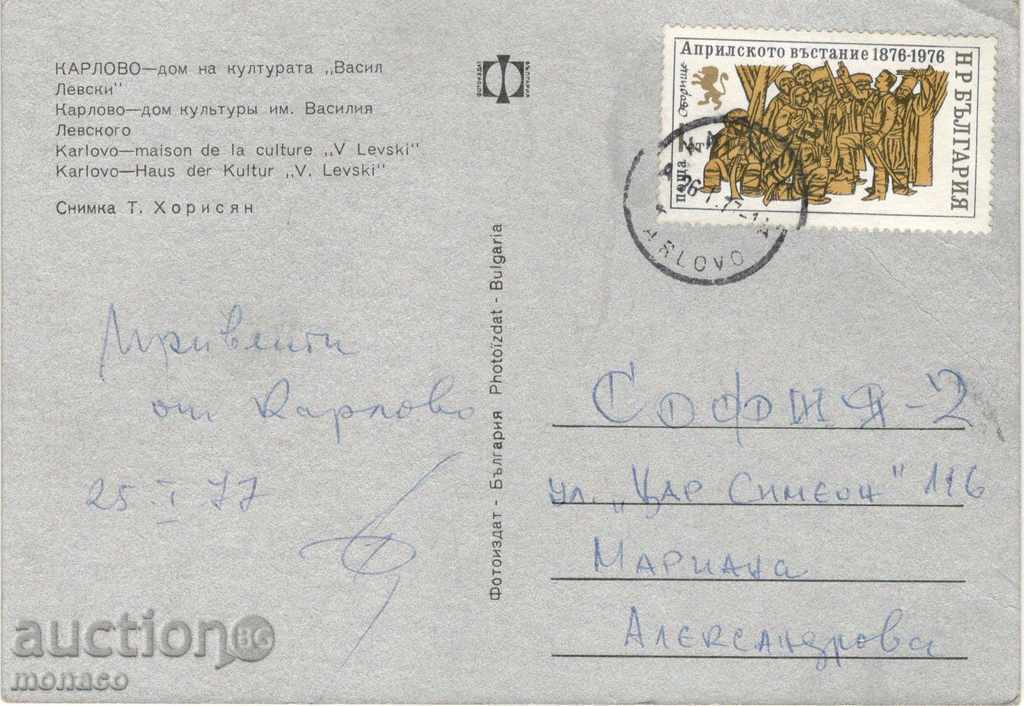 КАРЛОВО—дом на културата „Васил
Левски"
Карлово—дом культуры им. Василия
Левского
Karlovo—maison de la culture „V Levski"
Karlovo—Haus der Kultur „V. Levski"
Снимка Т. Хорисян
ФОТОИЗДАТ
БЪЛГАРИЯ
Априлското въстание 1876-1976
НР БЪЛГАРИЯ
Оборище
поща 2
26.1.77
KARLOVO
Фотоиздат - България Photoïzdat - Bulgaria
Приветы
от Карлово
25 I 77
СОФИЯ-2
ул. „ЦАР СИМЕОН" 116
МАРИАНА
АЛЕКСАНДРОВА
auction BG
monaco